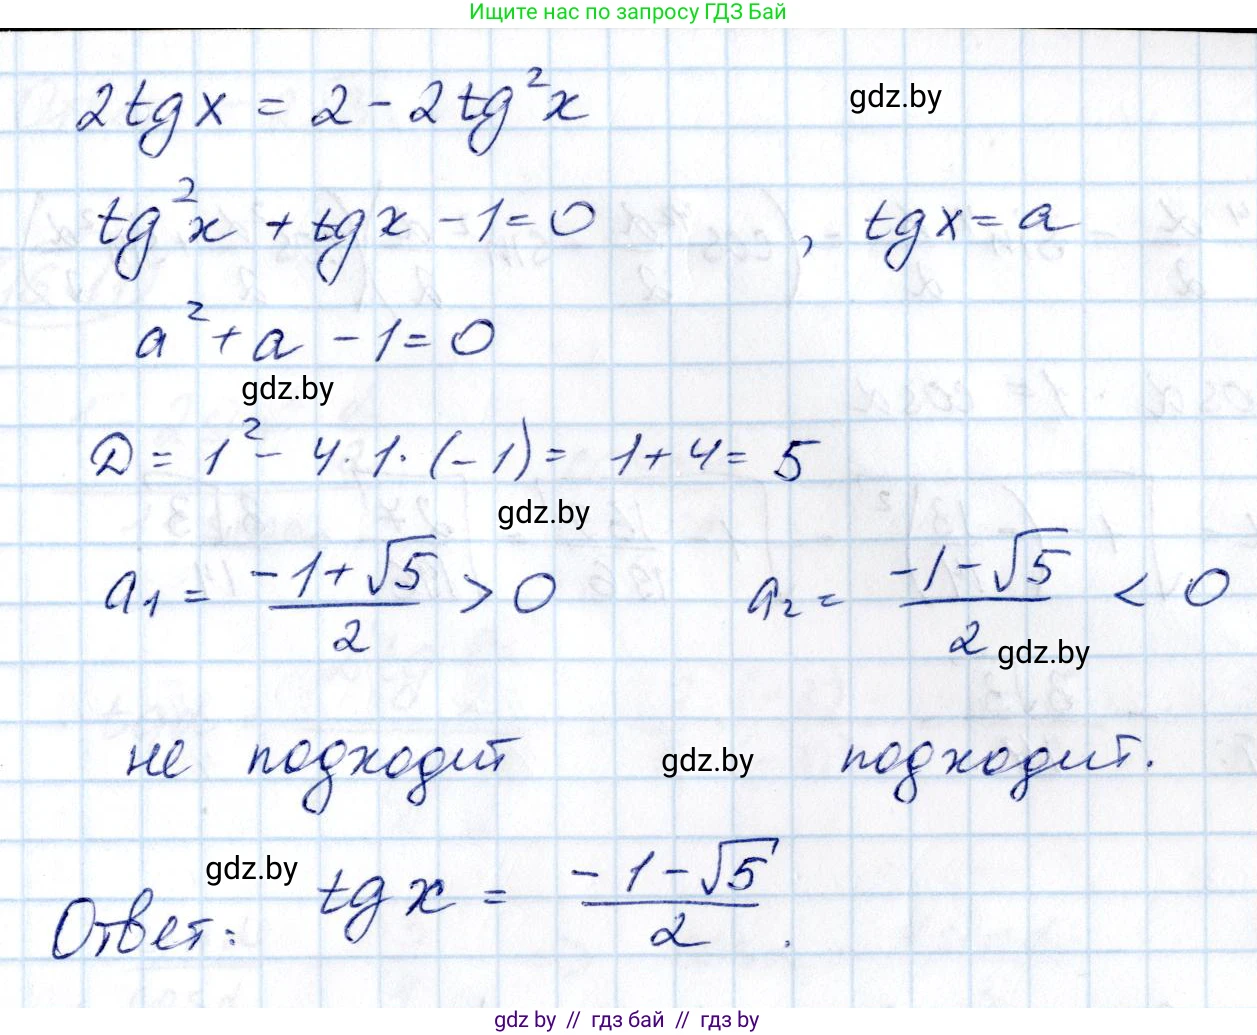 Ищите нас по запросу ГДЗ Бай
2tgx = 2 - 2tg²x
gdz.by
tg²x + tgx - 1 = 0 , tgx = a
a² + a - 1 = 0
gdz.by
D = 1² - 4 · 1 · (-1) = 1 + 4 = 5
gdz.by
a₁ = (-1 + √5)/2 > 0 a₂ = (-1 - √5)/2 < 0
gdz.by
не подходит gdz.by подходит.
gdz.by
Ответ: tgx = (-1 - √5)/2 .
gdz.by // гдз бай // гдз by